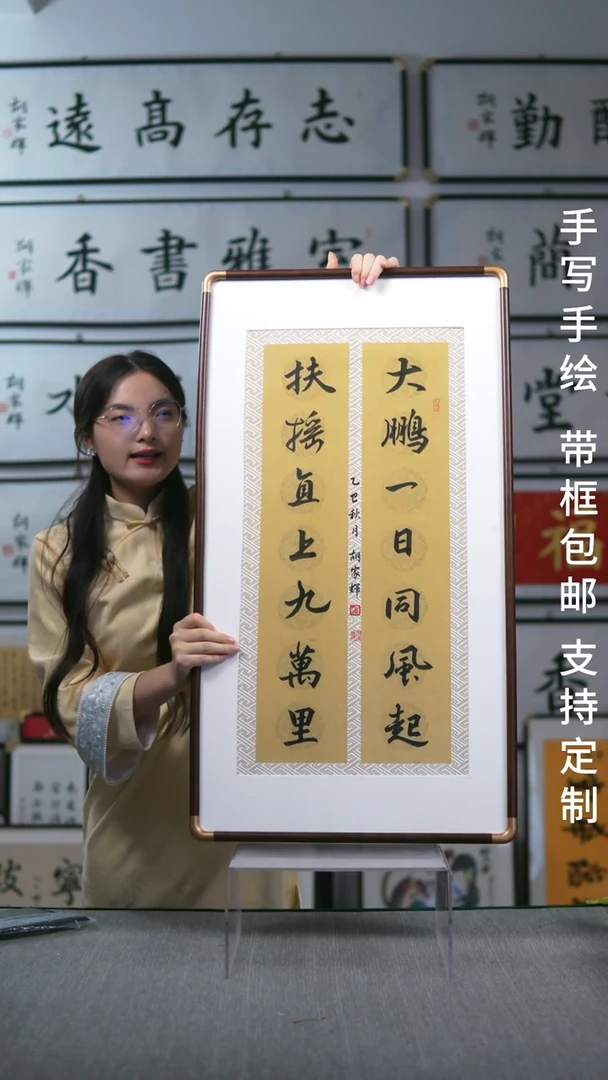 大鹏一日同風起
扶摇直上九萬里
乙巳秋月 胡家輝
手写手绘 带框包邮 支持定制
志存高遠
胡家輝
勤
胡家輝
家雅書香
胡家輝
胡家輝
堂
福
香
寧